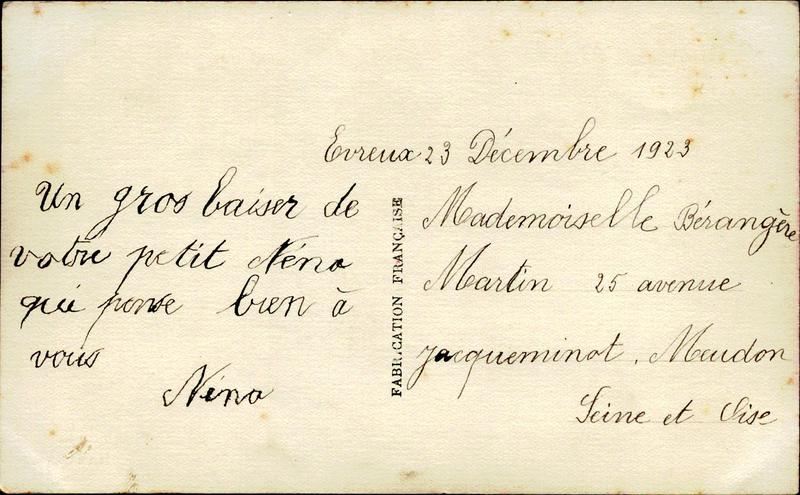 Evreux 23 Décembre 1923
Un gros baiser de
votre petit Néno
qui pense bien à
vous
Néno
FABRICATION FRANÇAISE
Mademoiselle Bérangère
Martin 25 avenue
Jacqueminot. Meudon
Seine et Oise